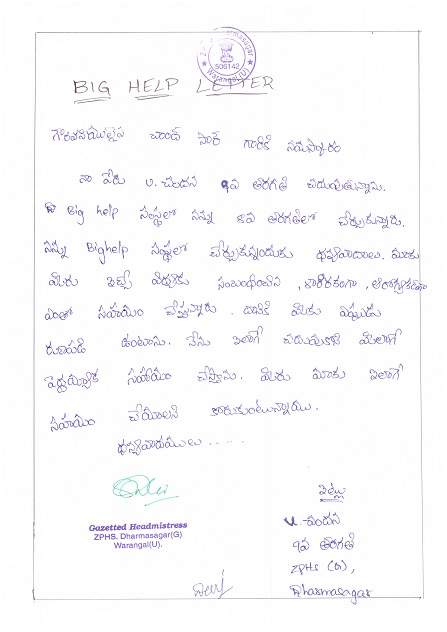 ZPHS Dharmasagar
506142
Warangal (U)
BIG HELP LETTER
గౌరవనీయులైన చాంద్ సార్ గారికి నమస్కారం
నా పేరు U. చందన 9వ తరగతి చదువుతున్నాను.
Big help సంస్థలో నన్ను 8వ తరగతిలో చేర్చుకున్నారు.
నన్ను Bighelp సంస్థలో చేర్చుకున్నందుకు ధన్యవాదాలు. మాకు
మీరు ఇచ్చే విద్యకు సంబంధించిన, శారీరకంగా, ఆరోగ్యకరంగా
ఎంతో సహాయం చేస్తున్నారు. దానికి మీకు ఎప్పుడు
రుణపడి ఉంటాను. నేను ఇలాగే చదువుకొని మీలాగే
పెద్దయ్యాక సహాయం చేస్తాను. మీరు మాకు ఇలాగే
సహాయం చేయాలని కోరుకుంటున్నాము.
ధన్యవాదములు .....
Gazetted Headmistress
ZPHS. Dharmasagar(G)
Warangal(U).
ఇట్లు
U. చందన
9వ తరగతి
ZPHS (G),
Dharmasagar